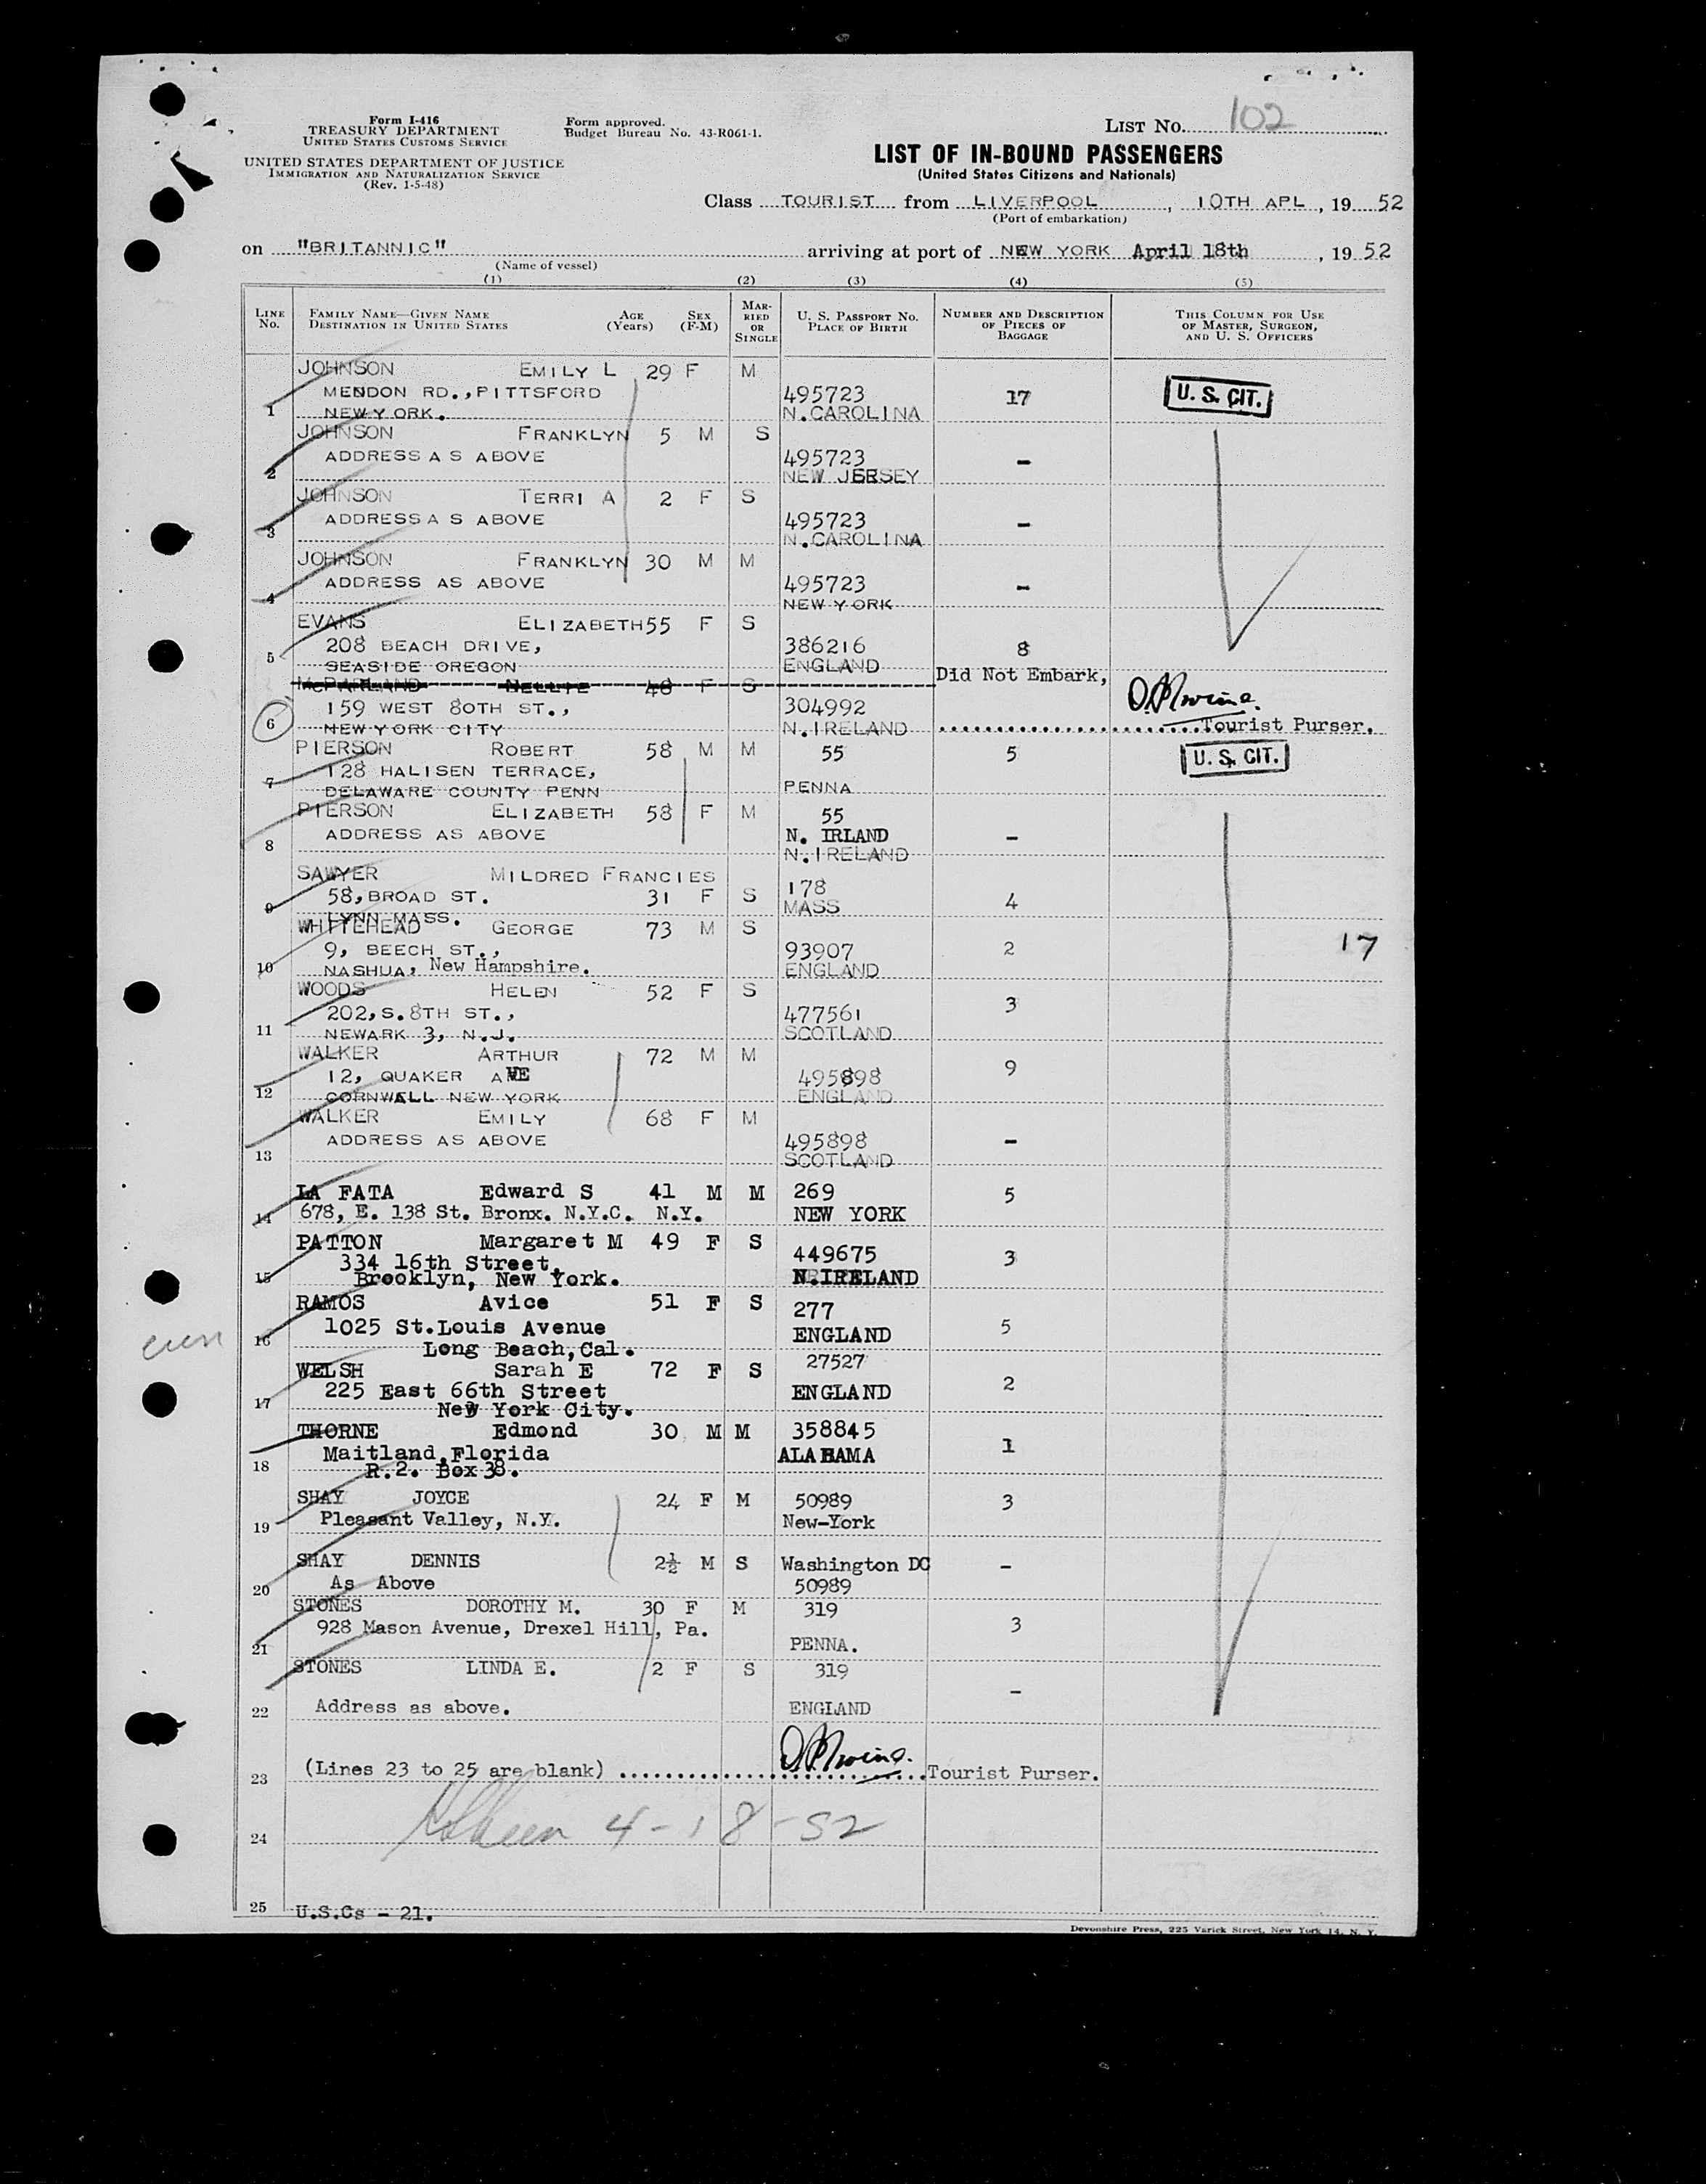 Form I-416
TREASURY DEPARTMENT
UNITED STATES CUSTOMS SERVICE
UNITED STATES DEPARTMENT OF JUSTICE
IMMIGRATION AND NATURALIZATION SERVICE
(Rev. 1-5-48)
Form approved.
Budget Bureau No. 43-R061-1.
LIST NO. 102
LIST OF IN-BOUND PASSENGERS
(United States Citizens and Nationals)
Class TOURIST from LIVERPOOL, 10TH APL, 19 52
(Port of embarkation)
on "BRITANNIC" arriving at port of NEW YORK April 18th, 19 52
(Name of vessel)
(1) (2) (3) (4) (5)
LINE No. FAMILY NAME—GIVEN NAME DESTINATION IN UNITED STATES AGE (Years) SEX (F-M) MARRIED OR SINGLE U. S. PASSPORT NO. PLACE OF BIRTH NUMBER AND DESCRIPTION OF PIECES OF BAGGAGE THIS COLUMN FOR USE OF MASTER, SURGEON, AND U. S. OFFICERS
JOHNSON EMILY L 29 F M
MENDON RD., PITTSFORD 495723 17 U. S. CIT.
1 NEW YORK. N. CAROLINA
JOHNSON FRANKLYN 5 M S
ADDRESS A S ABOVE 495723 -
2 NEW JERSEY
JOHNSON TERRI A 2 F S
ADDRESS A S ABOVE 495723 -
3 N. CAROLINA
JOHNSON FRANKLYN 30 M M
ADDRESS AS ABOVE 495723 -
4 NEW YORK
EVANS ELIZABETH 55 F S
208 BEACH DRIVE, 386216 8
5 SEASIDE OREGON ENGLAND
McPARLAND NELLIE 48 F S Did Not Embark,
159 WEST 80TH ST., 304992
6 NEW YORK CITY N. IRELAND Tourist Purser.
PIERSON ROBERT 58 M M 55 5 U. S. CIT.
7 128 HALISEN TERRACE,
DELAWARE COUNTY PENN PENNA
PIERSON ELIZABETH 58 F M 55
ADDRESS AS ABOVE N. IRLAND -
8 N. IRELAND
SAWYER MILDRED FRANCIES 178
9 58, BROAD ST. 31 F S MASS 4
LYNN MASS.
WHITEHEAD GEORGE 73 M S
9, BEECH ST., 93907 2 17
10 NASHUA, New Hampshire. ENGLAND
WOODS HELEN 52 F S
202, S. 8TH ST., 477561 3
11 NEWARK 3, N.J. SCOTLAND
WALKER ARTHUR 72 M M
12, QUAKER AVE 495898 9
12 CORNWALL NEW YORK ENGLAND
WALKER EMILY 68 F M
ADDRESS AS ABOVE 495898 -
13 SCOTLAND
LA FATA Edward S 41 M M 269 5
14 678, E. 138 St. Bronx. N.Y.C. N.Y. NEW YORK
PATTON Margaret M 49 F S 449675 3
334 16th Street,
15 Brooklyn, New York. N.IRELAND
RAMOS Avice 51 F S 277
16 1025 St.Louis Avenue ENGLAND 5
Long Beach, Cal.
WELSH Sarah E 72 F S 27527
225 East 66th Street ENGLAND 2
17 New York City.
THORNE Edmond 30 M M 358845 1
Maitland, Florida ALABAMA
18 R.2. Box 38.
SHAY JOYCE 24 F M 50989 3
19 Pleasant Valley, N.Y. New-York
SHAY DENNIS 2½ M S Washington DC -
20 As Above 50989
STONES DOROTHY M. 30 F M 319
928 Mason Avenue, Drexel Hill, Pa. 3
21 PENNA.
STONES LINDA E. 2 F S 319
-
22 Address as above. ENGLAND
23 (Lines 23 to 25 are blank) Tourist Purser.
24 4-18-52
25 U.S.Cs - 21.
Devonshire Press, 225 Varick Street, New York 14, N. Y.